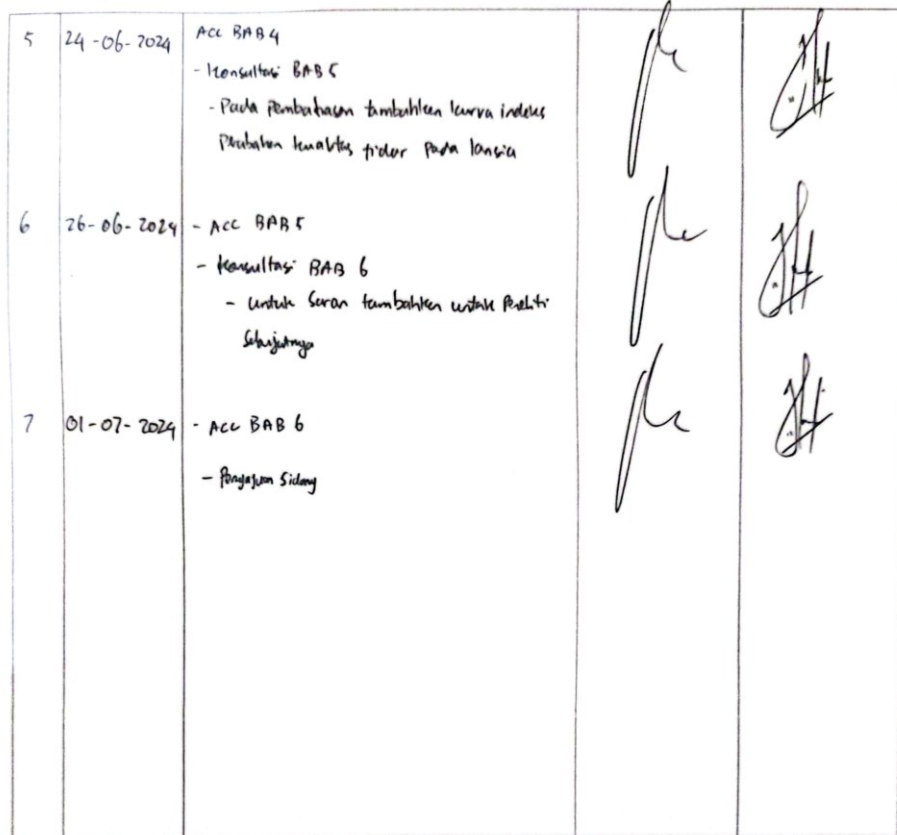 5 24-06-2024 ACC BAB 4
- Konsultasi BAB 5
- Pada Pembahasan tambahkan kurva indeks
Perubahan kualitas tidur pada lansia
6 26-06-2024 - ACC BAB 5
- Konsultasi BAB 6
- untuk Saran tambahkan untuk Peneliti
Selanjutnya
7 01-07-2024 - ACC BAB 6
- Pengajuan Sidang